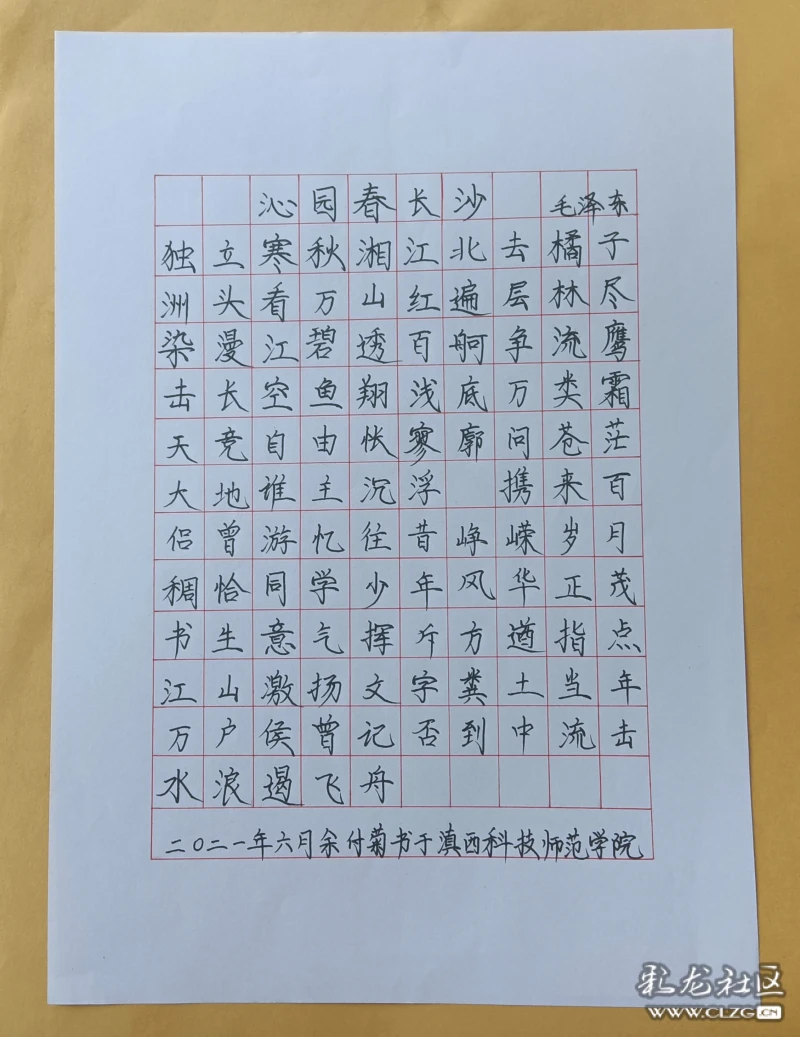 沁园春长沙 毛泽东
独立寒秋湘江北去橘子
洲头看万山红遍层林尽
染漫江碧透百舸争流鹰
击长空鱼翔浅底万类霜
天竞自由怅寥廓问苍茫
大地谁主沉浮 携来百
侣曾游忆往昔峥嵘岁月
稠恰同学少年风华正茂
书生意气挥斥方遒指点
江山激扬文字粪土当年
万户侯曾记否到中流击
水浪遏飞舟
二〇二一年六月余付菊书于滇西科技师范学院
彩龙社区
WWW.CLZG.CN